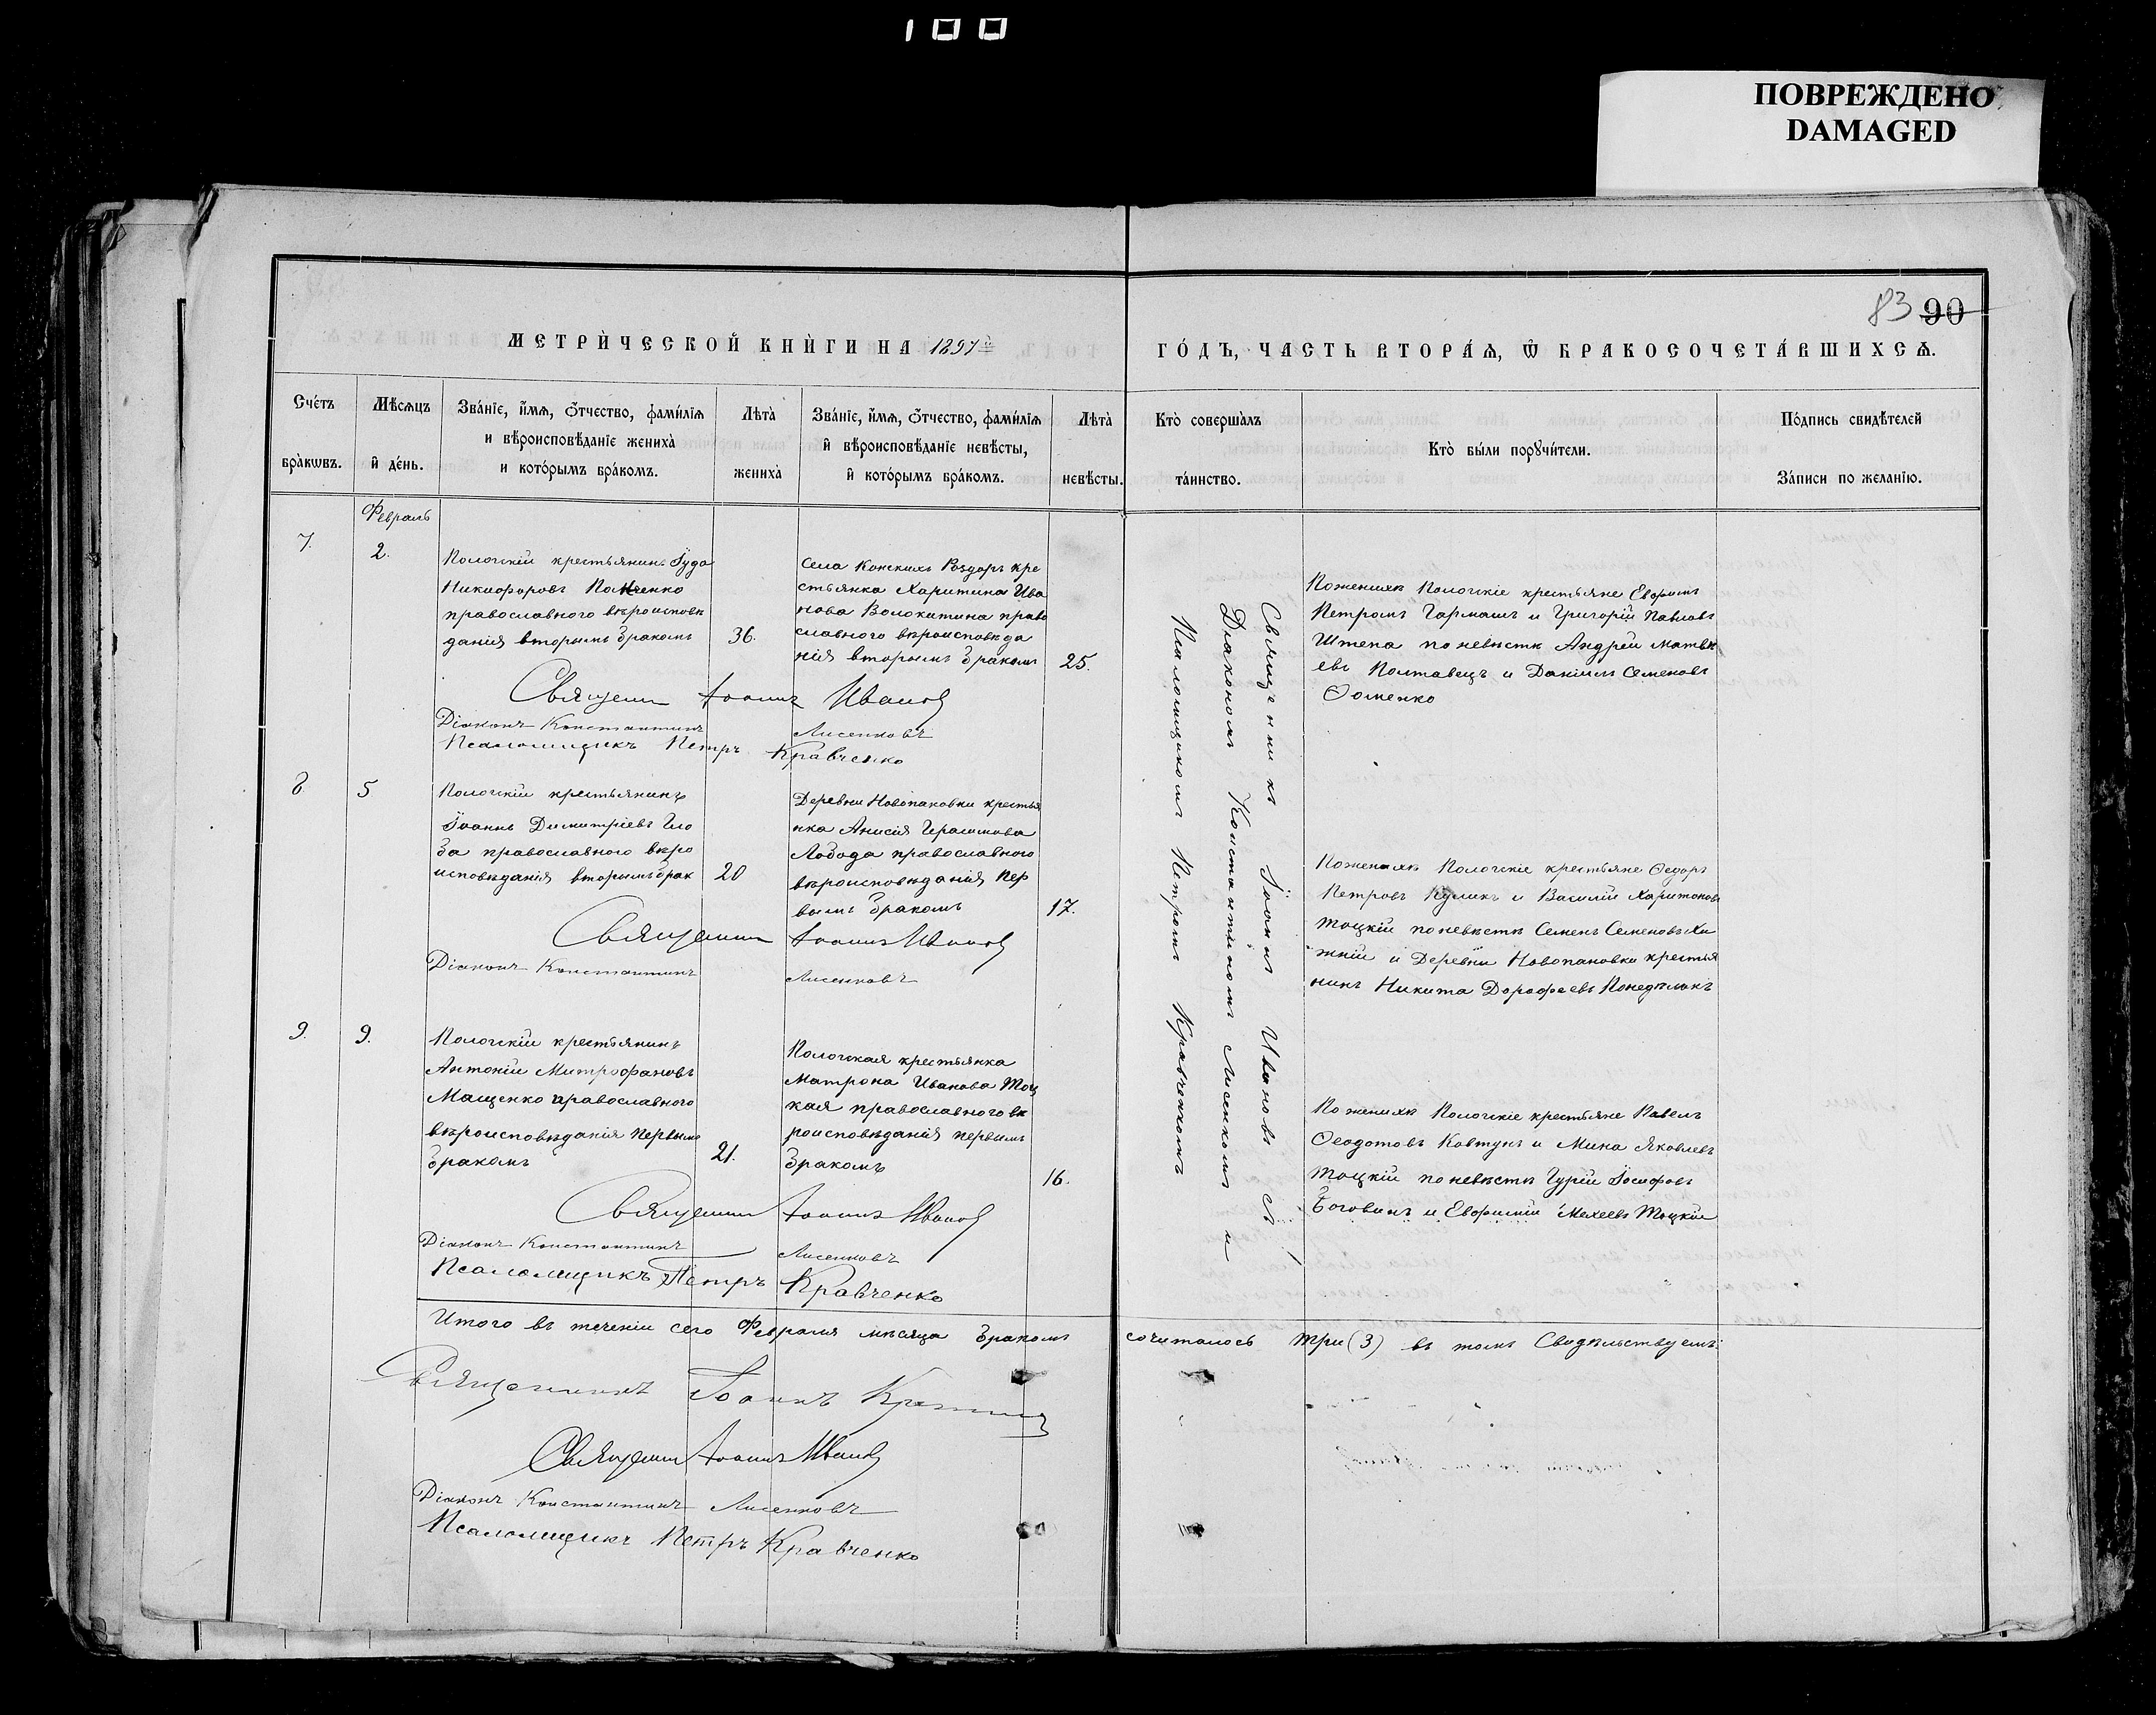 100
ПОВРЕЖДЕНО
DAMAGED
83 90
МЕТРИ́ЧЕСКОЙ КНИ́ГИ НА 1897й
ГО́ДЪ, ЧАСТЬ ВТОРА́Ѧ, Ѡ БРАКОСОЧЕТА́ВШИХСѦ.
Сче́тъ бра́кѡвъ.
Мѣ́сѧцъ и҆ де́нь.
Зва́нїе, и҆́мѧ, ѻ҆́тчество, фами́лїѧ
и вѣроисповѣ́данїе жениха̀
и кото́рымъ бра́комъ.
Лѣта̀
жениха̀
Зва́нїе, и҆́мѧ, ѻ҆́тчество, фами́лїѧ
и҆ вѣроисповѣ́данїе невѣ́сты,
и҆ кото́рымъ бра́комъ.
Лѣта̀
невѣ́сты.
Кто̀ соверша̀лъ
та́инство.
Кто̀ бы́ли порꙋчи́тели.
По́дпись свидѣ́телей
За́писи по жела́нїю.
Февраль
7.
2.
Пологскій крестьянинъ Іуда
Никифоровъ
православного вѣроисповѣ
данія вторымъ бракомъ
36.
Села Конскихъ Роздоръ кре
стьянка Харитина Ива
нова Волокитина право
славного вѣроисповѣда
нія вторымъ бракомъ
25.
Поженихѣ Пологскіе крестьяне Евфимъ
Петровъ Гармашъ и Григорій Павловъ
Штепа по невѣстѣ Андрей Матвѣ
евъ Полтавецъ и Даніилъ Семеновъ
Фоменко
Священникъ Іоаннъ Ивановъ
Діаконъ Константинъ Лисенковъ
Псаломщикъ Петръ Кравченко
8
5
Пологскій крестьянинъ
Іоаннъ Димитріевъ Гло
ба православного вѣро
исповѣданія вторымъ брак
20
Деревни Новопановки крестья
нка Анисія Герасимова
Лобода православного
вѣроисповѣданія пер
вымъ бракомъ
17.
Поженихѣ Пологскіе крестьяне Федоръ
Петровъ Куликъ и Василій Харитоновъ
Тоцкій по невѣстѣ Семенъ Семеновъ Хи
жній и Деревни Новопановки крестья
нинъ Никита Дорофеевъ Понедѣлокъ
Священникъ Іоаннъ Ивановъ
Діаконъ Константинъ Лисенковъ
9.
9.
Пологскій крестьянинъ
Антоній Митрофановъ
Мащенко православного
вѣроисповѣданія первымъ
бракомъ
21.
Пологская крестьянка
Матрона Иванова Тоц
кая православного вѣ
роисповѣданія первымъ
бракомъ
16.
По женихѣ Пологскіе крестьяне Павелъ
Феодотовъ Ковтунъ и Мина Яковлевъ
Тоцкій по невѣстѣ Гурій Іосифовъ
Боговинъ и Евфимій Михеевъ Тоцкій
Священникъ Іоаннъ Ивановъ
Діаконъ Константинъ Лисенковъ
Псаломщикъ Петръ Кравченко
Священникъ Іоаннъ Ивановъ съ
Діакономъ Константиномъ Лисенкомъ и
Псаломщикомъ Петромъ Кравченкомъ
Итого въ теченіи сего Февраля мѣсяца бракомъ сочиталось три (3) въ томъ Свидѣтельствуемъ:
Священникъ Іоаннъ
Священникъ Іоаннъ Ивановъ
Діаконъ Константинъ Лисенковъ
Псаломщикъ Петръ Кравченко